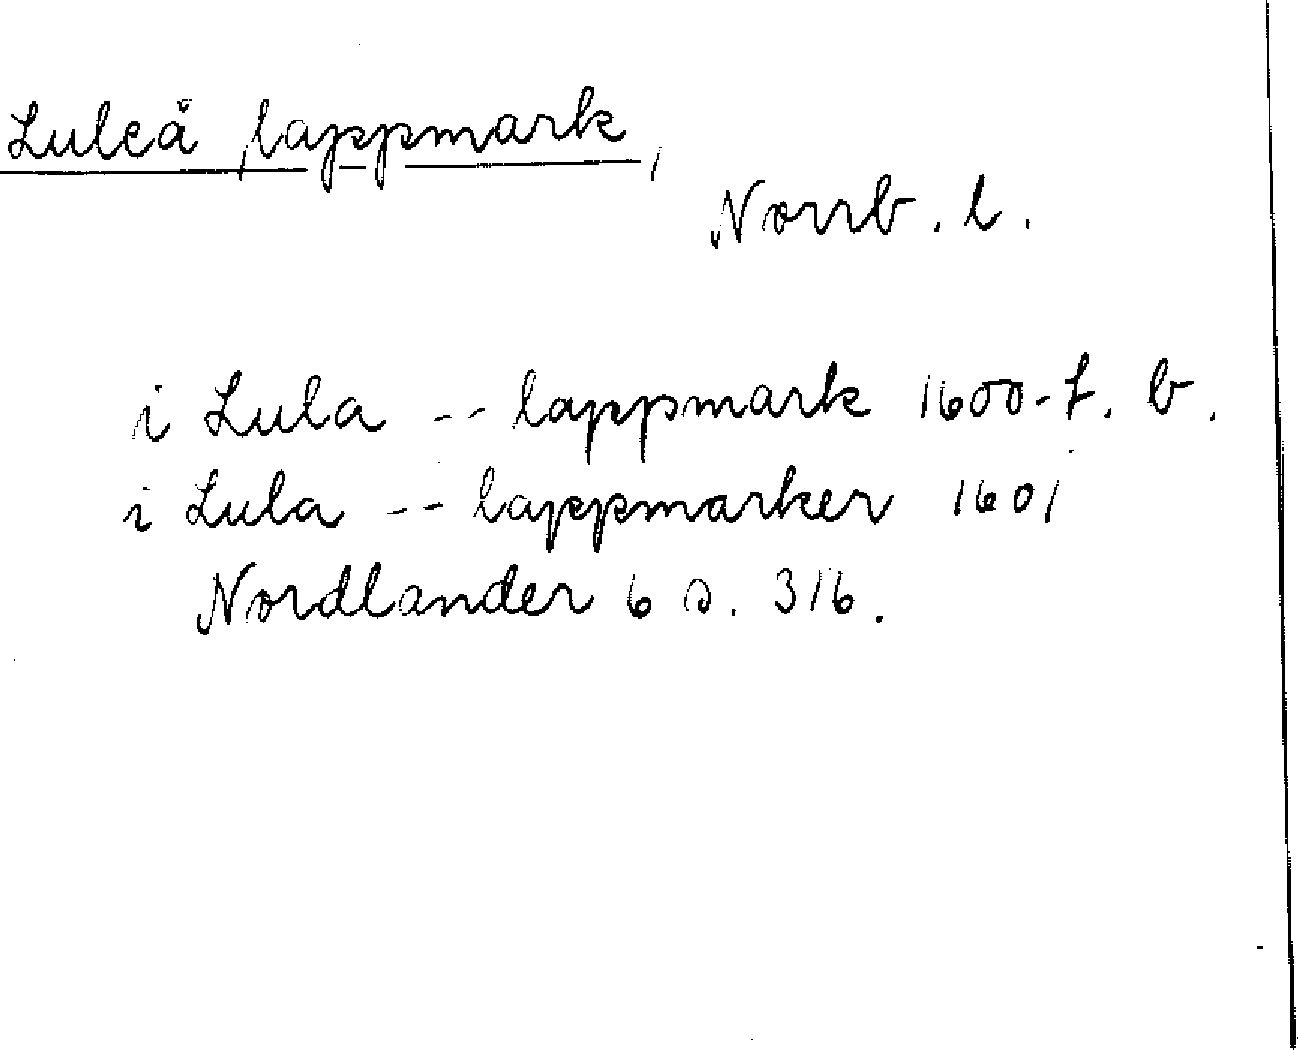 Luleå lappmark,
Norrb. l.
i Lula -- lappmark 1600-t. b.
i Lula -- lappmarker 1601
Nordlander 6 s. 316.